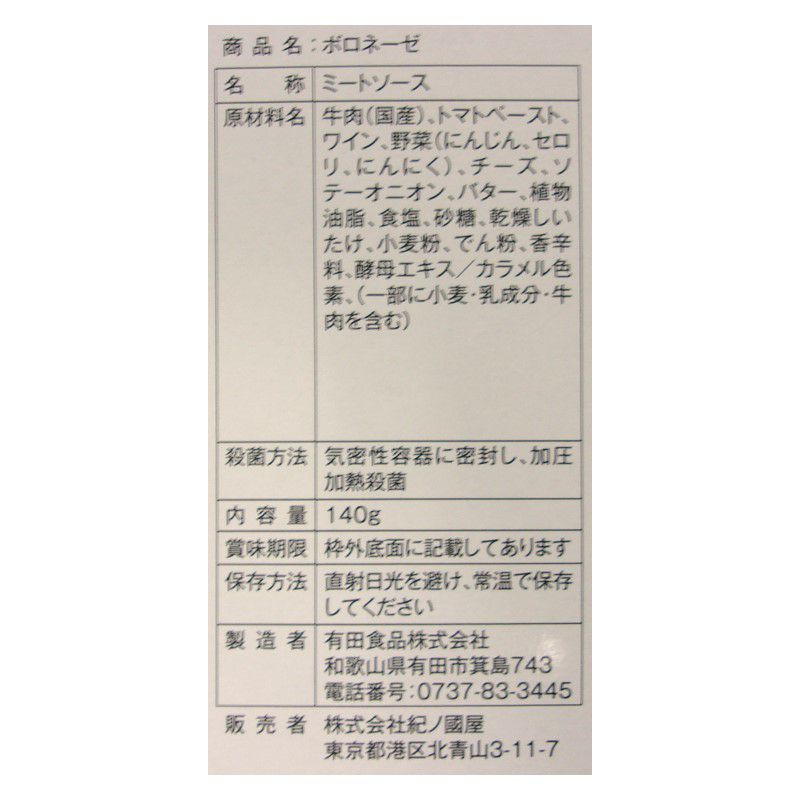 商品名：ボロネーゼ
名称 ミートソース
原材料名 牛肉（国産）、トマトペースト、
ワイン、野菜（にんじん、セロ
リ、にんにく）、チーズ、ソ
テーオニオン、バター、植物
油脂、食塩、砂糖、乾燥しい
たけ、小麦粉、でん粉、香辛
料、酵母エキス／カラメル色
素、（一部に小麦・乳成分・牛
肉を含む）
殺菌方法 気密性容器に密封し、加圧
加熱殺菌
内容量 140g
賞味期限 枠外底面に記載してあります
保存方法 直射日光を避け、常温で保存
してください
製造者 有田食品株式会社
和歌山県有田市箕島743
電話番号：0737-83-3445
販売者 株式会社紀ノ國屋
東京都港区北青山3-11-7